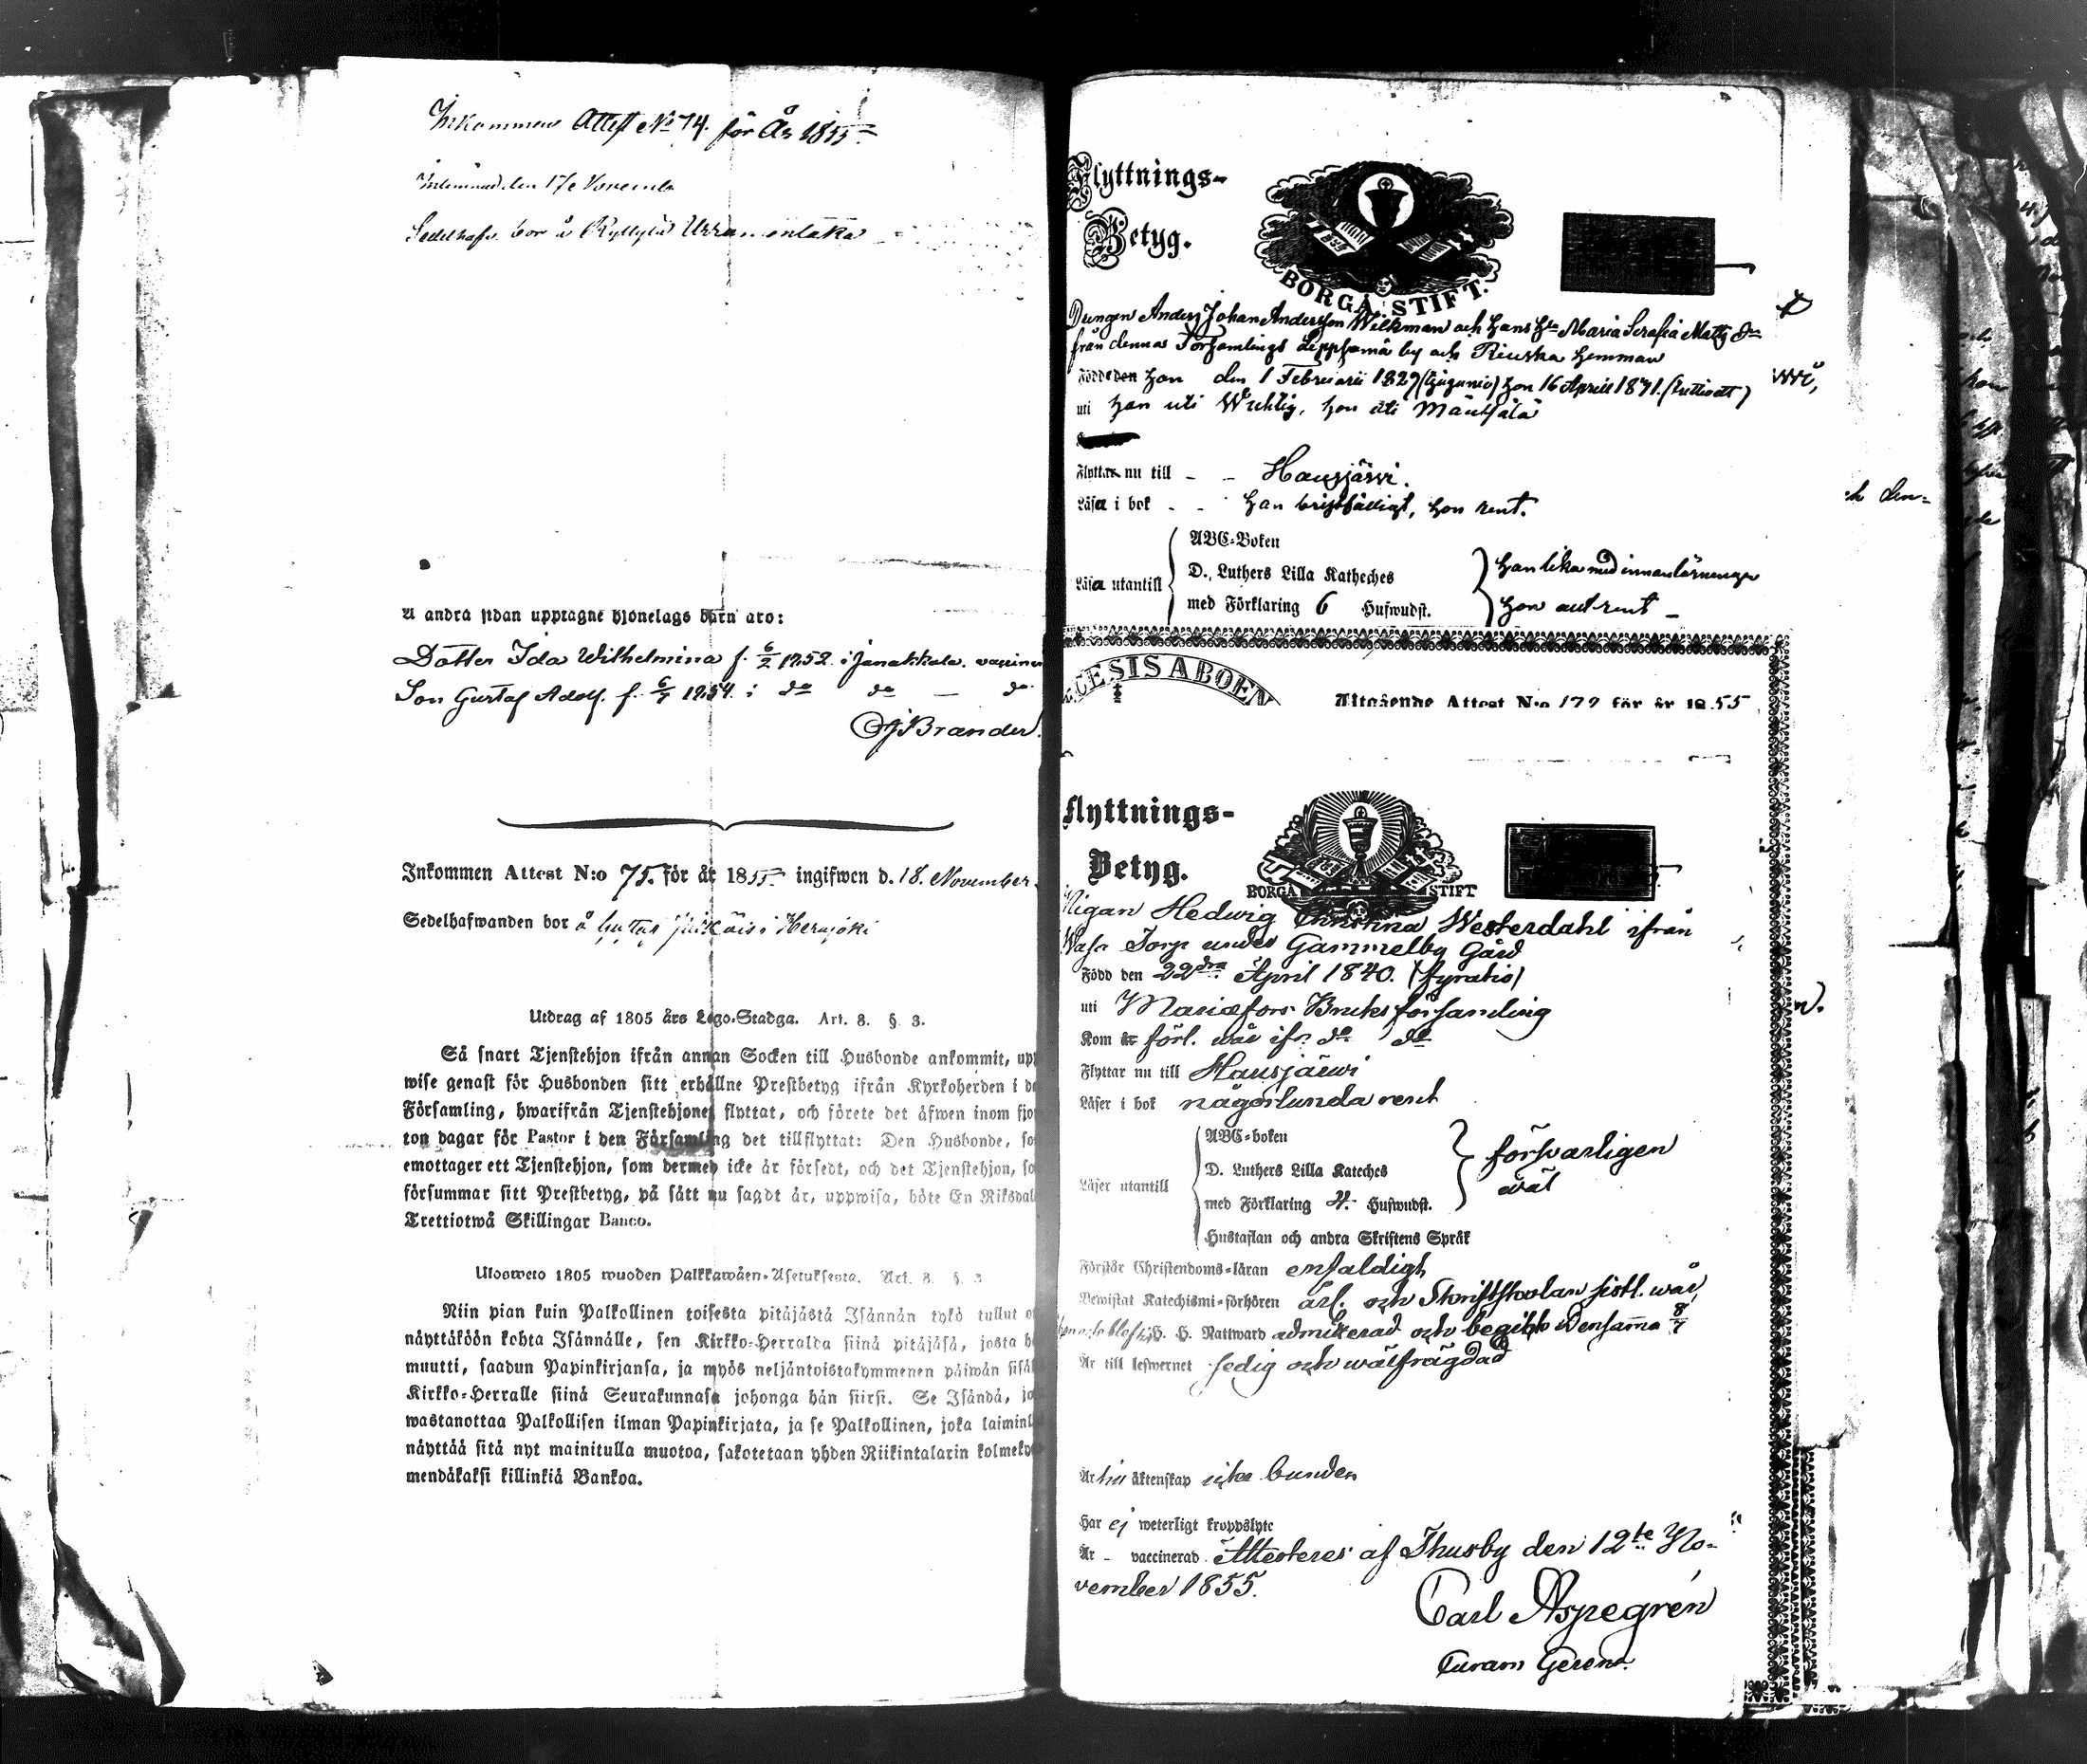 Inkommen Attest No 74. för År 1855
Inlemnad den 17e Novemb
Sedelhafv. bor å Ryttylä
Å andra sidan upptagne hjonelags barn äro:
Dotter Ida Wilhelmina f. 6/2 1852. i Janakkala. vacciner
Son Gustaf Adolf. f. 6/7 1854. i do do — do
Brander.
Inkommen Attest N:o 75. för år 1855 ingifwen d. 18. November.
Sedelhafwanden bor å Herajoki
Utdrag af 1805 års Lego-Stadga. Art. 8. §. 3.
Så snart Tjenstehjon ifrån annan Socken till Husbonde ankommit, upp
wise genast för Husbonden sitt erhållne Prestbetyg ifrån Kyrkoherden i de
Församling, hwarifrån Tjenstehjonet flyttat, och förete det äfwen inom fjor
ton dagar för Pastor i den Församling det tillflyttat: Den Husbonde, so
emottager ett Tjenstehjon, som dermed icke är försedt, och det Tjenstehjon, so
försummar sitt Prestbetyg, på sätt nu sagdt är, uppwisa, böte En Riksdal
Trettiotwå Skillingar Banco.
Ulosweto 1805 wuoden Palkkawäen-Asetuksesta. Art. 8. §. 3
Niin pian kuin Palkollinen toisesta pitäjästä Isännän tykö tullut o
näyttäköön kohta Isännälle, sen Kirkko-Herralda siinä pitäjäsä, josta h
muutti, saadun Papinkirjansa, ja myös neljäntoistakymmenen päiwän sisäl
Kirkko-Herralle siinä Seurakunnasa johonga hän siirsi. Se Isändä, jo
wastanottaa Palkollisen ilman Papinkirjata, ja se Palkollinen, joka laiminl
näyttää sitä nyt mainitulla muotoa, sakotetaan yhden Riikintalarin kolmeky
mendäkaksi killinkiä Bankoa.
Flyttnings-
Betyg.
BORGÅ STIFT.
Drengen Anders Johan Andersson Wilkman och hans Hu Maria Serafia Matts dr
från dennas Församlings by och Hemman
Född den han den 1 Februarii 1829 (tjugunio) hon 16 Aprill 1831. (trettioett)
uti han uti Wichtis, hon uti Mäntsälä
Flyttar nu till - - Hausjärwi.
Läsa i bok - - han bristfälligt, hon rent.
Läsa utantill
ABC-Boken
D. Luthers Lilla Katheches
med Förklaring 6 Hufwudst.
han lika med innanläsningen
hon rent —
ESIS ABOEN
Utgående Attest N:o 172 för år 1855
Flyttnings-
Betyg.
BORGÅ STIFT
Pigan Hedwig Christina Westerdahl ifrån
Torp under Gammelby Gård
Född den 22dra April 1840. (fyratio)
uti Mariæfors Bruks församling
Kom förl. wår ifr. do do
Flyttar nu till Hausjärwi
Läser i bok någorlunda rent
Läser utantill
ABC-boken
D. Luthers Lilla Kateches
med Förklaring 4. Hufwudst.
Hustaflan och andra Skriftens Språk
försvarligen
wäl
Förstår Christendoms-läran enfaldigt
Bewistat Katechismi-förhören årl. och Skriftskolan sistl. wår,
H. H. Nattward admitterad och begikk densamma 8/7
Är till lefwernet sedig och wälfrägdad
Är till äktenskap icke bunden
Har ej weterligt kroppslyte
Är - vaccinerad Attesteres af Thusby den 12te No-
vember 1855.
Carl Aspegrén
Curam Gerens.